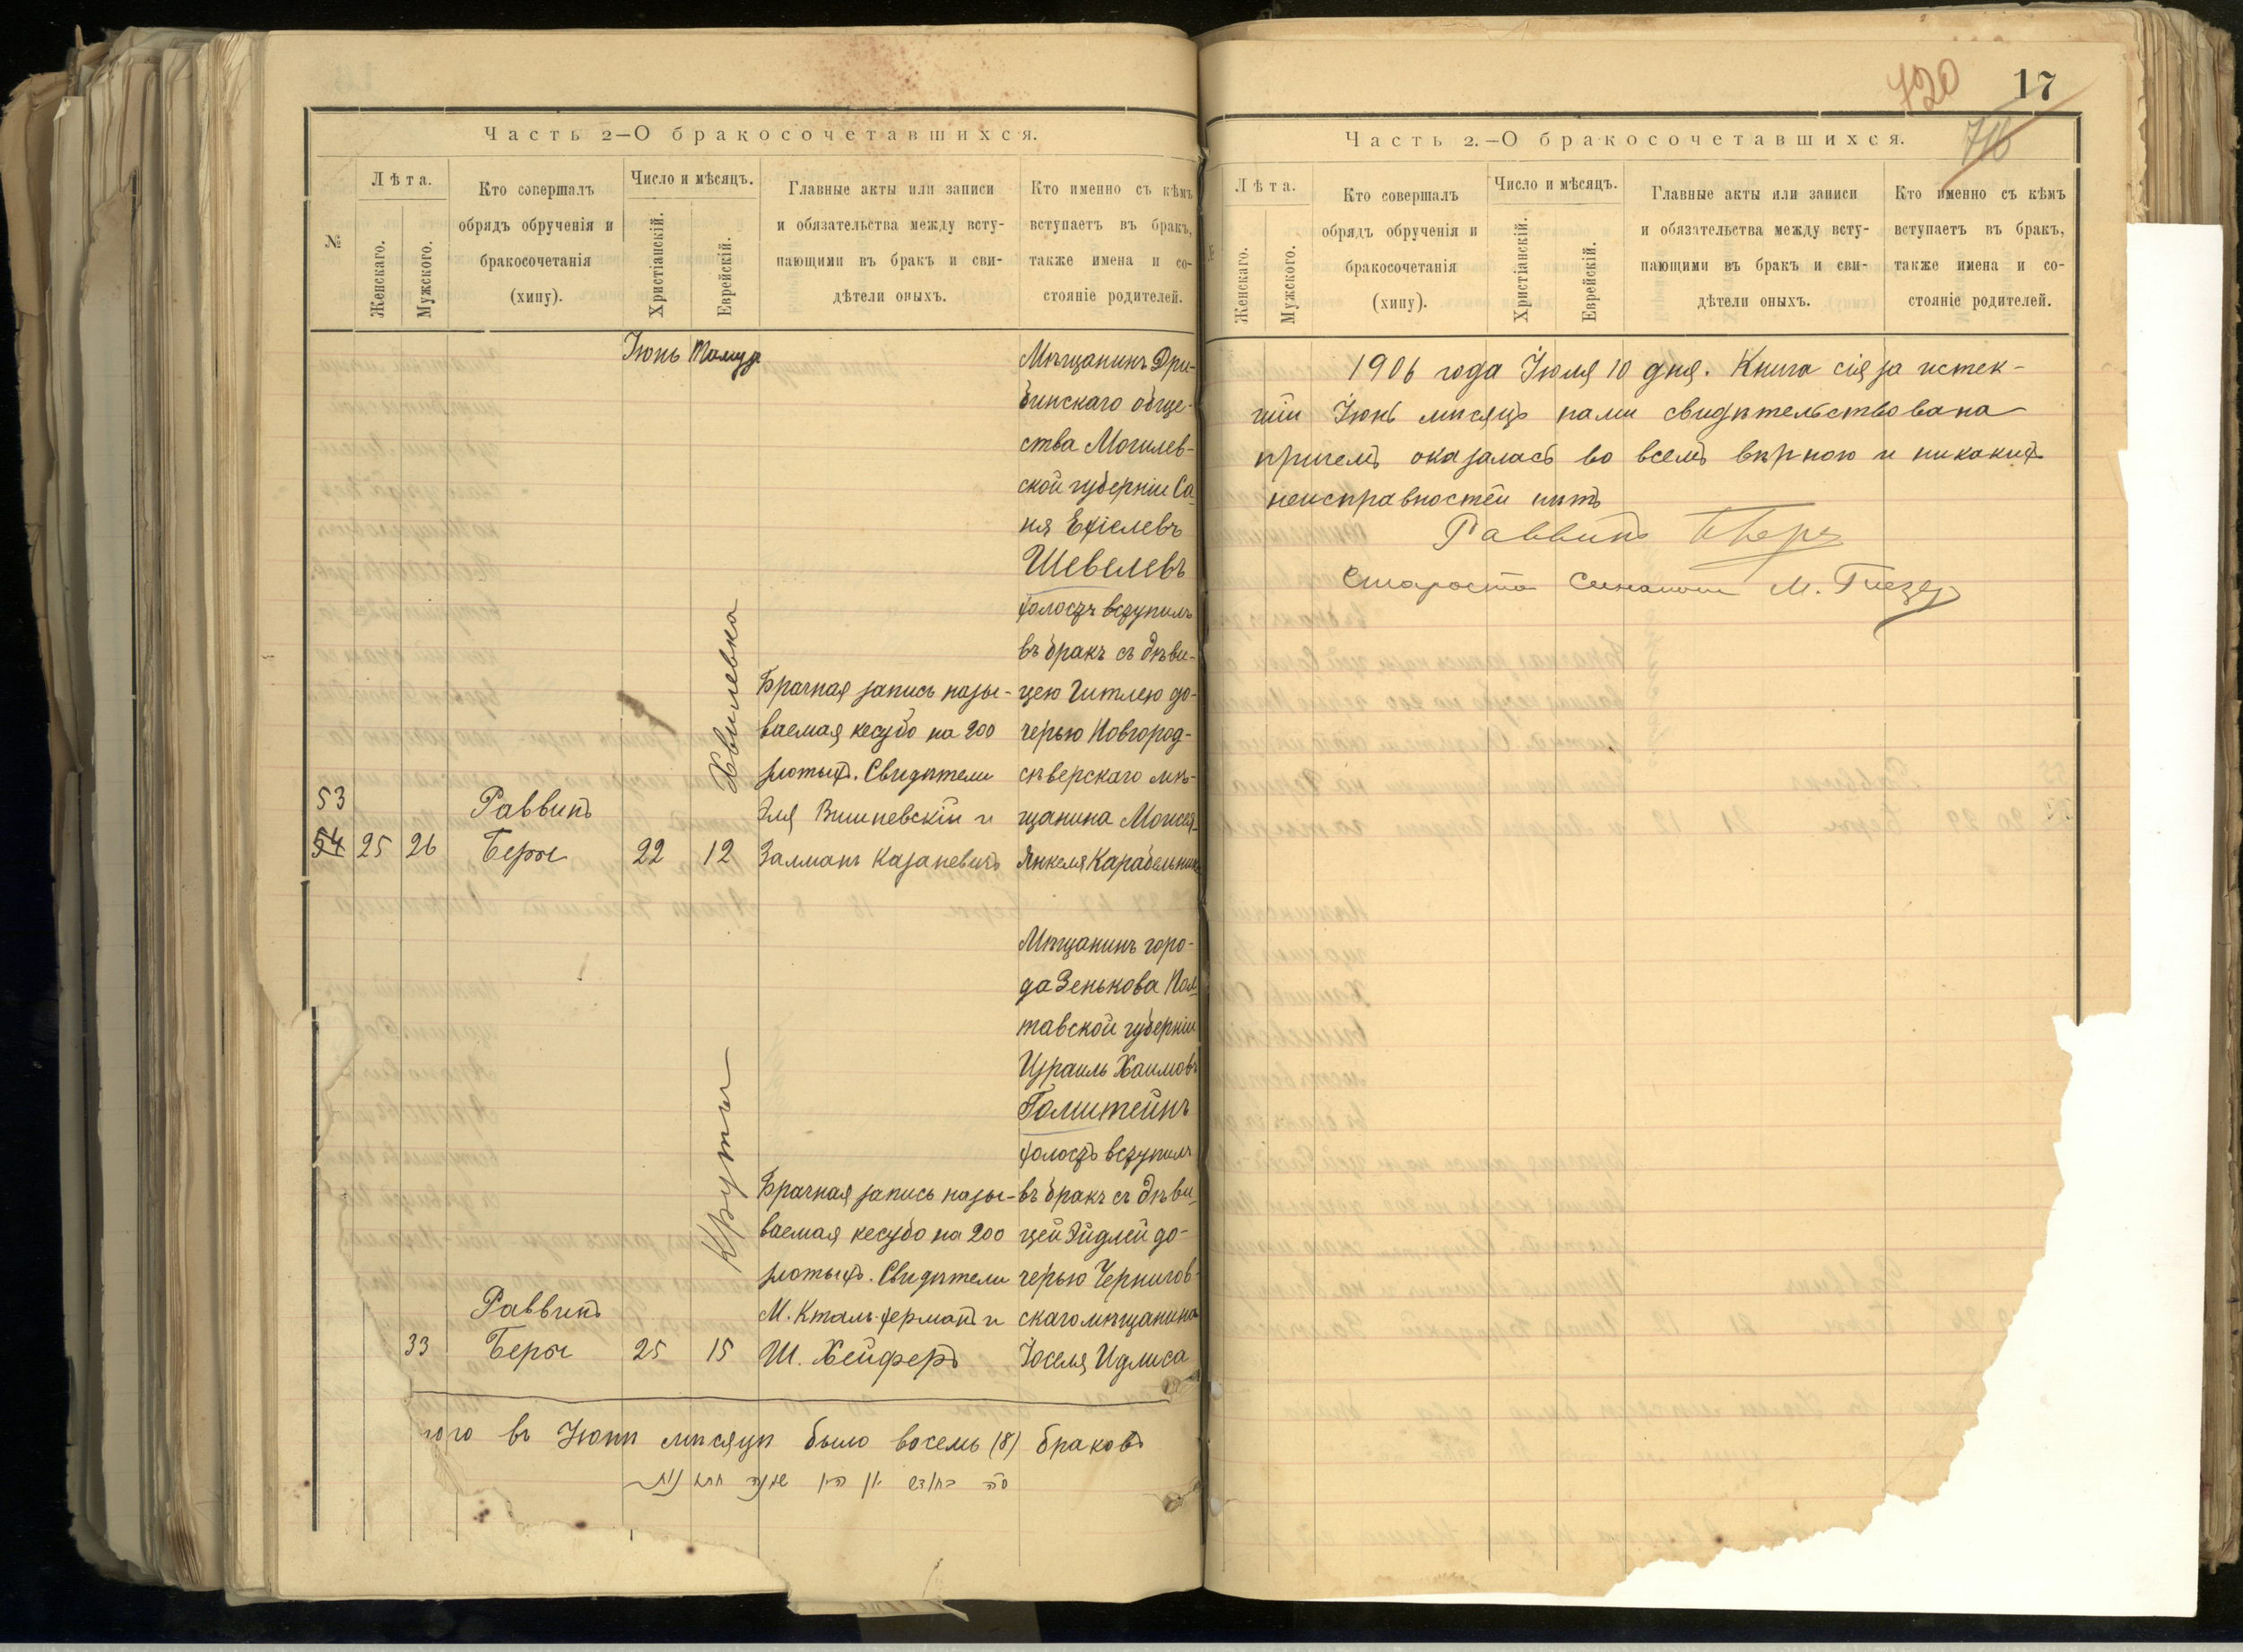 Часть 2—О бракосочетавшихся.
№
Лѣта.
Женскаго.
Мужского.
Кто совершалъ
обрядъ обрученія и
бракосочетанія
(хипу).
Число и мѣсяцъ.
Христіанскій.
Еврейскій.
Главные акты или записи
и обязательства между всту-
пающими въ бракъ и сви-
дѣтели оныхъ.
Кто именно съ кѣмъ
вступаетъ въ бракъ,
также имена и со-
стояніе родителей.
Іюнь Тамуз
53
54 25 26
Раввинъ
Берг
22 12
Хвилевка
Брачная запись назы-
ваемая кесубо на 200
злотыхъ. Свидѣтели
Эля Вишневскій и
Залманъ Казаневичъ
Мѣщанинъ Дри-
бинскаго обще-
ства Могилев-
ской губерніи Са-
ня Ехіелевъ
Шевелевъ
холостъ вступилъ
въ бракъ съ дѣви-
цею Гитлею до-
черью Новгород-
сѣверскаго мѣ-
щанина Моисея-
Янкеля Карабельник
33
Раввинъ
Берг
25 15
Круты
Брачная запись назы-
ваемая кесубо на 200
злотыхъ. Свидѣтели
М. и
Ш. Хейферъ
Мѣщанинъ горо-
да Зенькова Пол-
тавской губерніи
Израиль Хаимовъ
Голштейнъ
холостъ вступилъ
въ бракъ съ дѣви-
цей Эйдлей до-
черью Чернигов-
скаго мѣщанина
Іоселя Идлиса
того въ Іюнѣ мѣсяцѣ было восемь (8) браковъ
720
17
716
Часть 2.—О бракосочетавшихся.
Лѣта.
Женскаго.
Мужского.
Кто совершалъ
обрядъ обрученія и
бракосочетанія
(хипу).
Число и мѣсяцъ.
Христіанскій.
Еврейскій.
Главные акты или записи
и обязательства между всту-
пающими въ бракъ и сви-
дѣтели оныхъ.
Кто именно съ кѣмъ
вступаетъ въ бракъ,
также имена и со-
стояніе родителей.
1906 года Іюля 10 дня. Книга сія за истек-
шій Іюнь мѣсяцъ нами свидѣтельствована
причемъ оказалась во всемъ вѣрною и никакихъ
неисправностей нѣтъ
Раввинъ Берг
Староста Синагоги М.